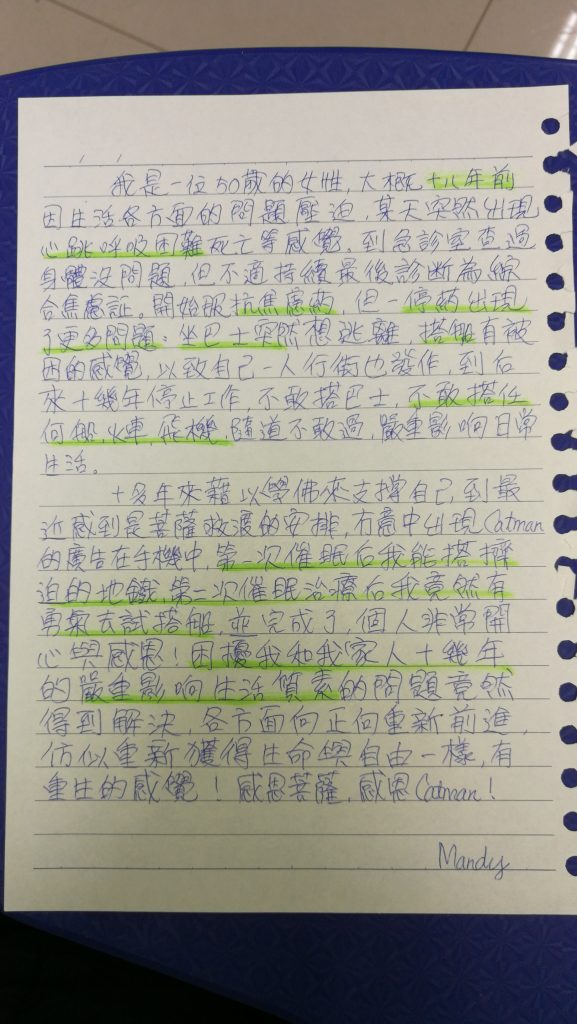 我是一位50歲的女性，大概十八年前
因生活各方面的問題壓迫，某天突然出現
心跳呼吸困難死亡等感覺。到急診室查過
身體沒問題，但不適持續最後診断為綜
合焦慮証。開始服抗焦慮葯，但一停葯出現
了更多問題：坐巴士突然想逃離，搭船有被
困的感覺，以致自己一人行街也發作，到后
來十幾年停止工作，不敢搭巴士，不敢搭任
何船，火車，飛機，隧道不敢過，嚴重影响日常
生活。
十多年來藉以學佛來支撐自己，到最
近感到是菩薩救渡的安排，冇意中出現Catman
的廣告在手機中，第一次催眠后我能搭擠
迫的地鐵，第二次催眠治療后我竟然有
勇氣去試搭船，並完成了，個人非常開
心與感恩！困擾我和我家人十幾年
的嚴重影响生活質素的問題竟然
得到解決，各方面向正向重新前進，
仿似重新獲得生命與自由一樣，有
重生的感覺！感恩菩薩，感恩Catman！
Mandy